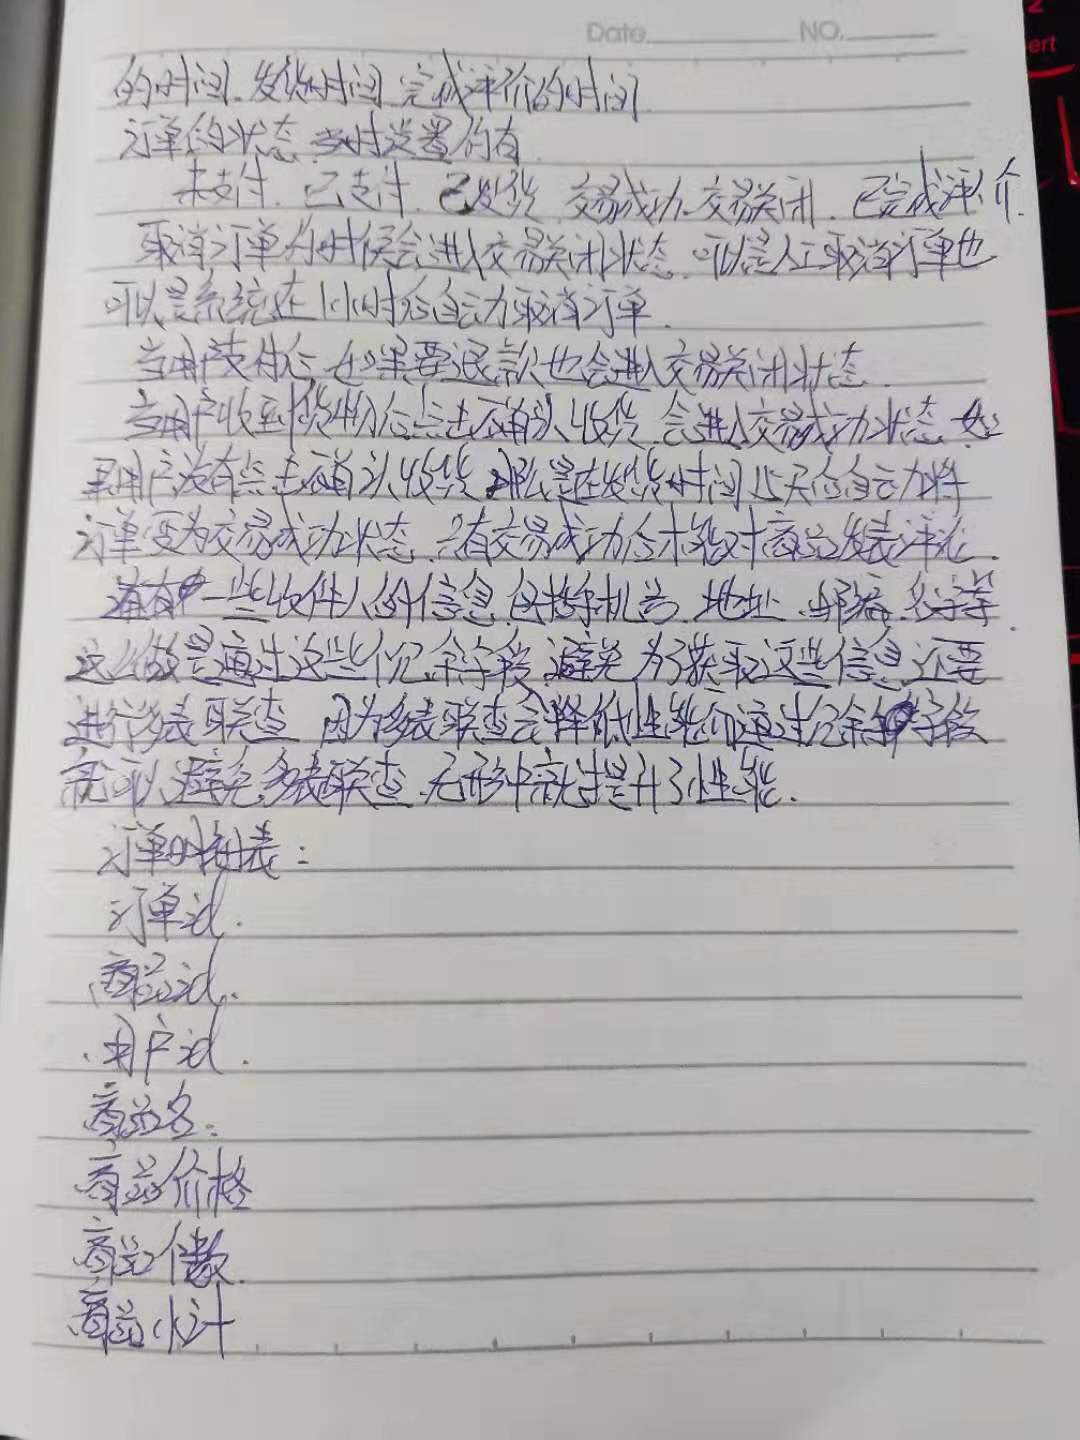 Date NO.
ert
的时间、发货时间、完成评价的时间
订单的状态,当时设置的有
未支付、已支付、已发货、交易成功、交易关闭、已完成评价.
取消订单的时候会进入交易关闭状态,可以是人工取消订单也
可以是系统在1小时后自动取消订单.
当用户支付后如果要退款也会进入交易关闭状态.
当用户收到货物后点击确认收货,会进入交易成功状态,如
果用户没有点击确认收货,那么是在发货时间15天后自动将
订单变为交易成功状态.只有交易成功后才能对商品发表评论.
还有一些收件人的信息,包括手机号、地址、邮编、名字等.
这么做是通过这些冗余字段,避免为了获取这些信息还要
进行多表联查,因为多表联查会降低性能,而通过冗余字段
就可以避免多表联查,无形中就提升了性能.
订单明细表:
订单id.
商品id.
用户id.
商品名.
商品价格
商品个数.
商品小计